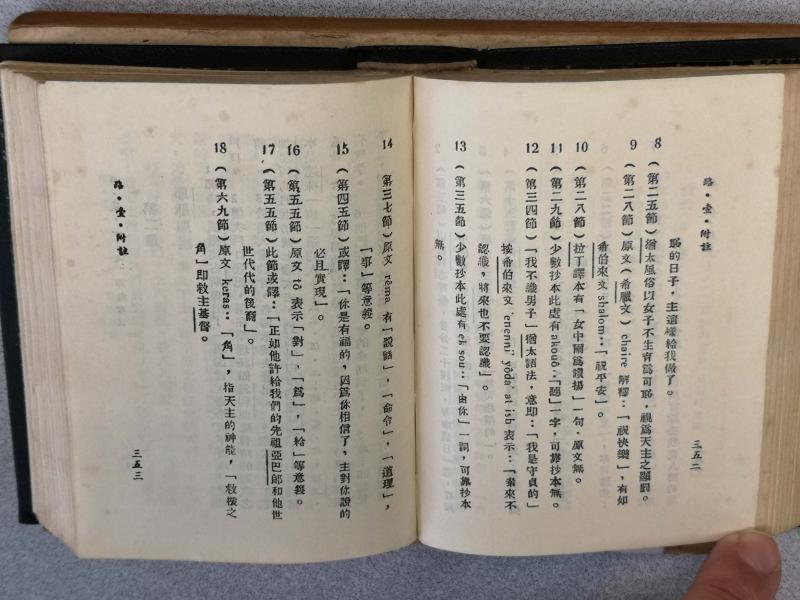 路·壹·附註
恥的日子，主這樣給我做了。
8（第二五節）猶太風俗以女子不生育爲可恥，視爲天主之顯罰。
9（第二八節）原文（希臘文）chaire 解釋：「祝快樂」，有如
希伯來文 shalom：「祝平安」。
10（第二八節）拉丁譯本有「女中爾爲讚揚」一句，原文無。
11（第二九節）少數抄本此處有 akouô：「聽」一字，可靠抄本無。
12（第三四節）「我不識男子」猶太語法，意即：「我是守貞的」
按希伯來文，enenni yôda' at ish 表示：「素來不
認識，將來也不要認識」。
13（第三五節）少數抄本此處有 ek sou：「由你」一詞，可靠抄本
無。
三五二
路·壹·附註
14（第三七節）原文 rêma 有「說話」，「命令」，「道理」，
「事」等意義。
15（第四五節）或譯：「你是有福的，因爲你相信了，主對你說的
必且實現」。
16（第五五節）原文 tô 表示「對」，「爲」，「給」等意義。
17（第五五節）此節或譯：「正如他許給我們的先祖亞巴郎和他世
世代代的後裔」。
18（第六九節）原文 keras：「角」，指天主的神能，「救援之
角」即救主基督。
三五三